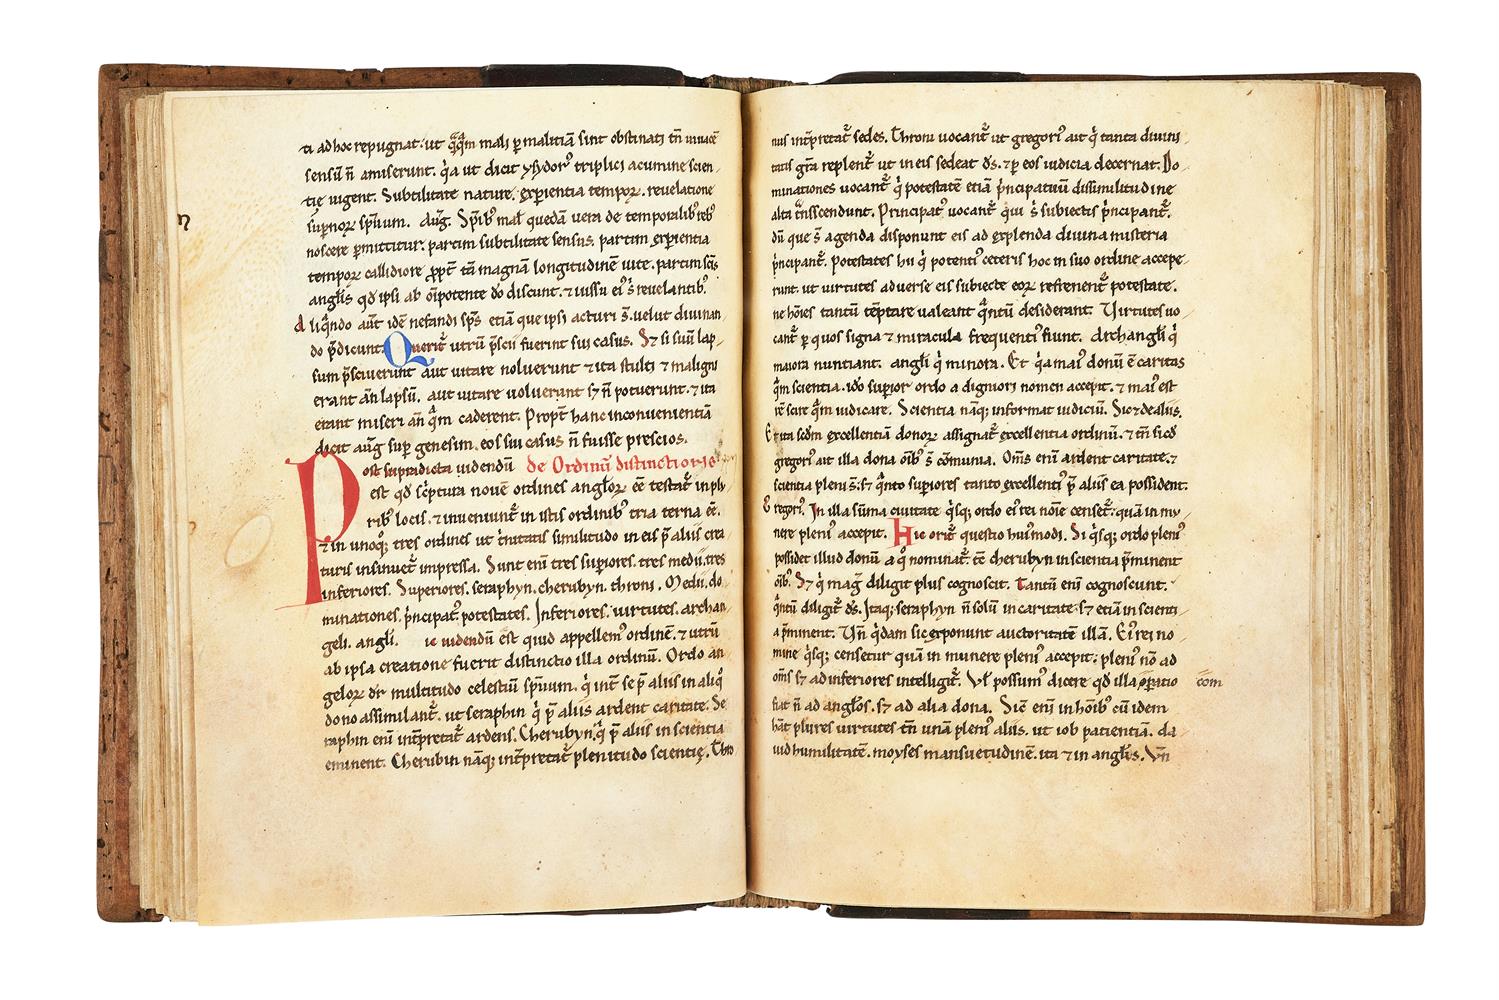 ti ad hoc repugnat. ut q̄q̄m mali ꝑ malitiā sint obstinati tn̄ vivacē
sensū n̄ amiserunt. q̇a ut dicit ysydorꝰ triplici acumine scien-
tie vigent. Subtilitate nature. exꝑientia tempoꝝ. revelatione
suꝑnoꝝ sp̄uum. Aug̅. Sp̄ibꝫ mal̅ quedā vera de temporalibꝫ rebꝫ
noscere ꝑmittitur. partim subtilitate sensus, partim exꝑientia
tempoꝝ callidiore ꝓpt̄ tā magnā longitudinē vite. partim sc̄is
angl̅is qd̅ ipsi ab oīpotente dō discunt. ⁊ iussu eiꝰ s̄ revelantibꝫ.
Aliq̄ndo aut̄ idē nefandi sp̄s etiā que ipsi acturi s̄. velut divinan
do p̄dicunt. Querit̄ utrū p̄scii fuerint sui casus. Sꝫ si suū lap-
sum p̄sciverunt aut vitare noluerunt ⁊ ita stulti ⁊ maligni
erant an̄ lapsū. aut vitare voluerunt sꝫ n̄ potuerunt. ⁊ ita
erant miseri an̄ q̄m caderent. Propt̄ hanc inconvenientiā
dicit aug̅ suꝑ genesim. eos sui casus n̄ fuisse prescios.
Post supradicta videndū de Ordinū distinctioñis
est qd̅ sc̄ptura novē ordines angl̅oꝝ eē testat̄ in plu
ribꝫ locis. ⁊ inveniunt̄ in istis ordinibꝫ tria terna eē.
⁊ in unoqꝫ tres ordines ut t̄nitatis similitudo in eis p̄ aliis crea
turis insinuet̄ impressa. Sunt enī tres suꝑiores. tres medii. tres
inferiores. Superiores. seraphyn. cherubyn. throni. Medii. do-
minationes. p̄ncipatꝰ. potestates. Inferiores. virtutes. archan-
geli. angl̅i. ic videndū est quid appellemꝰ ordinē. ⁊ utrū
ab ipsa creatione fuerit distinctio illa ordinū. Ordo an-
geloꝝ dr̄ multitudo celestiū sp̄uum. q̇ int̄ se p̄ aliis in aliqͦ
dono assimilant̄. ut seraphin q̇ p̄ aliis ardent caritate. Se
raphin enī int̄pretat̄ ardens. Cherubyn. q̇ p̄ aliis in scientia
eminent. Cherubin nāqꝫ int̄pretat̄ plenitudo scientie. Thro
nus int̄pretat̄ sedes. Throni vocant̄ ut gregoriꝰ ait q̇ tanta divini
tatis gr̄a replent̄ ut in eis sedeat dꝰs. ⁊ ꝑ eos iudicia decernat. Do
minationes vocant̄ q̇ potestatē etiā p̄ncipatuū dissimilitudine
alta t̄nsscendunt. Principatꝰ vocant̄ qui s̄ subiectis p̄ncipant̄.
dū que s̄ agenda disponunt eis ad explenda divina misteria
p̄ncipant̄. Potestates hii q̇ potentiꝰ ceteris hoc in suo ordine accepe-
runt. ut virtutes adverse eis subiecte eoꝝ refrenent̄ potestate.
ne hoīes tantū tēptare valeant q̄ntū desiderant. Virtutes vo
cant̄ ꝑ quos signa ⁊ miracula frequentiꝰ fiunt. Archangl̅i q̇
maiora nuntiant. angl̅i q̇ minora. Et q̇a maiꝰ donū ē caritas
q̄m scientia. iō suꝑior ordo a digniori nomen accepit. ⁊ maiꝰ est
scire q̄m iudicare. Scientia nāqꝫ informat iudiciū. Sic ⁊ de aliis.
Et ita scd̅m excellentiā donoꝝ assignat̄ excellentia ordinū. ⁊ tn̄ sicď
gregoriꝰ ait illa dona oībꝫ s̄ cōmunia. Om̄s enī ardent caritate. ⁊
scientia pleni s̄. sꝫ q̄nto suꝑiores tanto excellentiꝰ p̄ aliis ea possident.
Gregoriꝰ. In illa sūma civitate q̇sqꝫ ordo eiꝰ rei noīe censet̄. quā in mu-
nere pleniꝰ accepit. Hic orit̄ questio huiꝰmodi. Si q̇sqꝫ ordo pleniꝰ
possidet illud donū a qͦ nominat̄. tc̄ cherubyn in scientia p̄minent
oībꝫ. Sꝫ q̇ magꝭ diligit plus cognoscit. Tantū enī cognoscunt.
q̄ntū diligit̄ dꝰs. Itaqꝫ seraphyn n̄ solū in caritate. sꝫ etiā in scienti-
a p̄minent. Un̄ q̇dam sic exponunt auctoritatē illā. Eiꝰ rei no
mine q̇sqꝫ censetur quā in munere pleniꝰ accepit; pleniꝰ nō ad
om̄s sꝫ ad inferiores intelligit̄. Vl̅ possumꝰ dicere qd̅ illa oꝑatio com
fiat n̄ ad angl̅os. sꝫ ad alia dona. Sic enī in hoībꝫ cū idem
hn̄t plures virtutes tn̄ unā pleniꝰ aliis. ut iob patientiā. da-
vid humilitatē. moyses mansuetudinē. ita ⁊ in angl̅is. Un̄